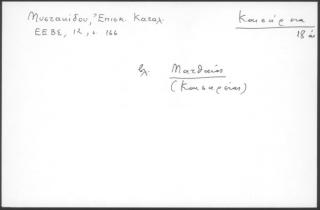 Μυστακίδου, Ἐπισκ. Καταλ.
ΕΕΒΣ, 12, σ. 166
Καισάρεια
18 αἰ.
βλ. Ματθαῖος
(Καισαρείας)